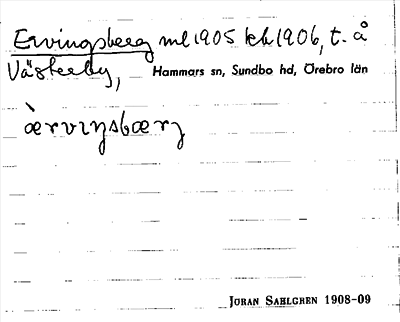 Ervingsberg ml 1905 kh 1906, t. å
Västerby, Hammars sn, Sundbo hd, Örebro län
æ̀rvıŋsbærj
Jöran Sahlgren 1908-09